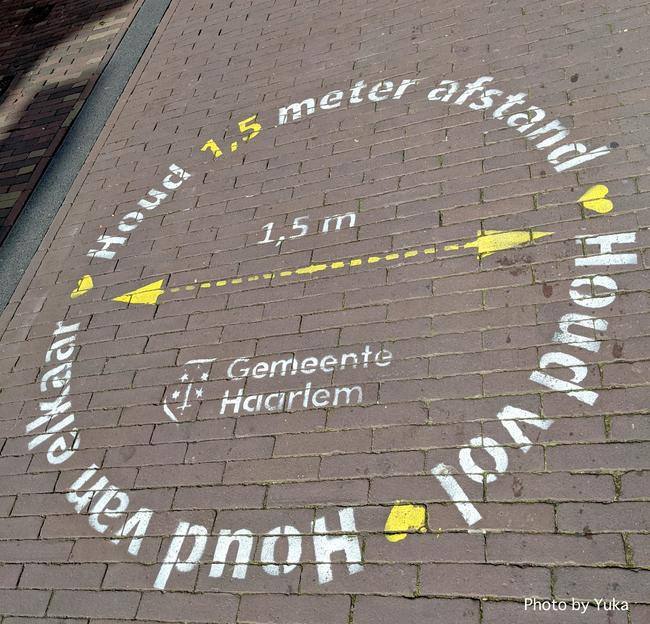 Houd 1,5 meter afstand
Houd vol
Houd van elkaar
1,5 m
Gemeente
Haarlem
Photo by Yuka